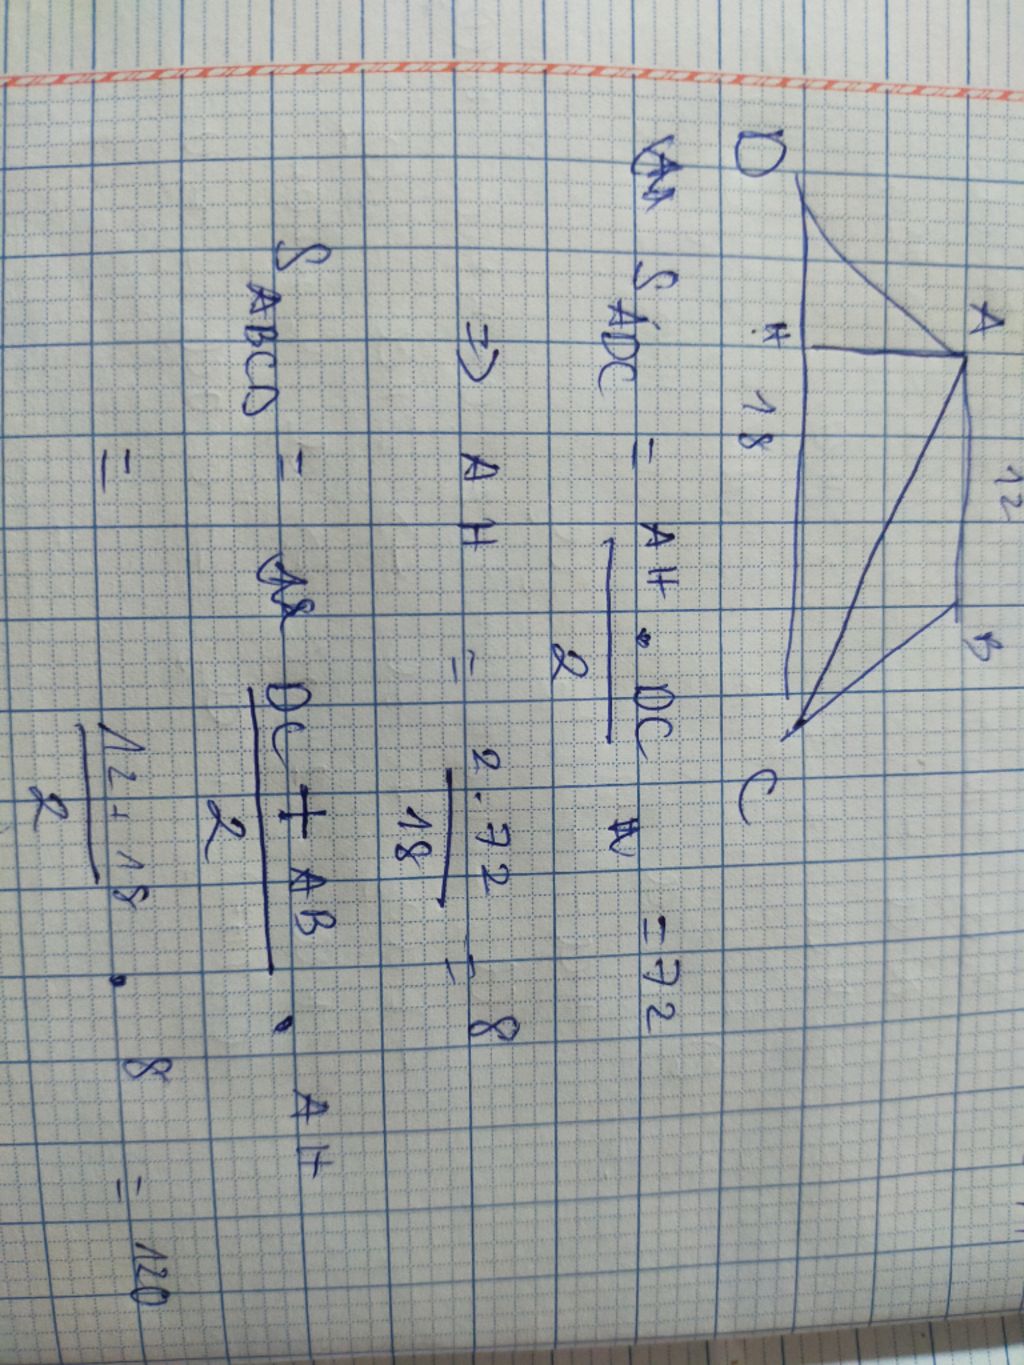 A 12 B
D H 18 C
S ADC = AH . DC / 2 = 72
=> AH = 2.72 / 18 = 8
S ABCD = DC + AB / 2 . AH
= 12 + 18 / 2 . 8 = 120